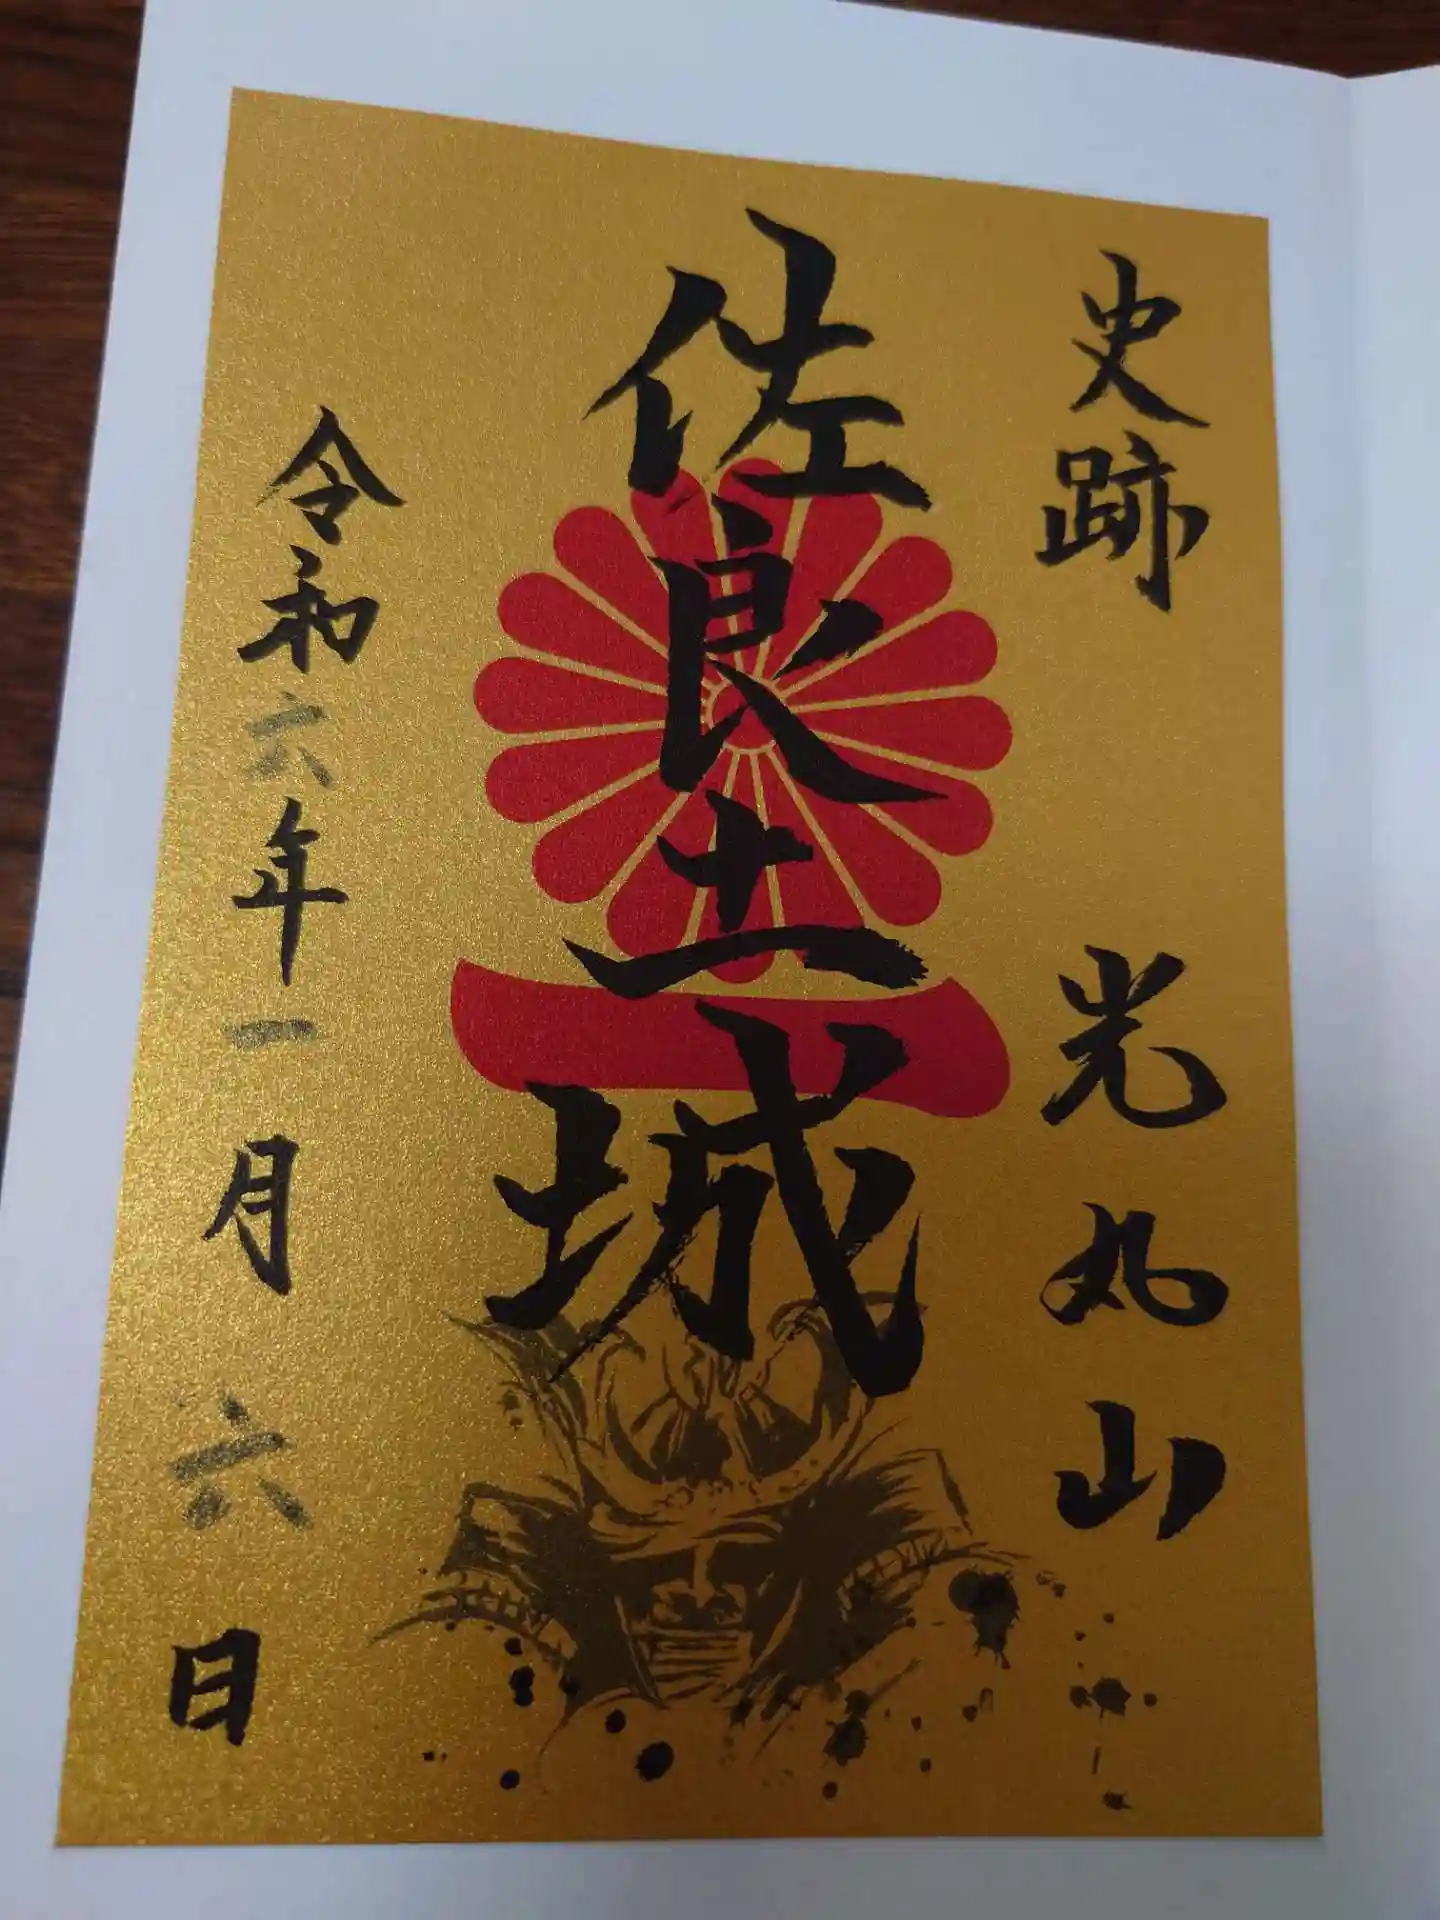 史跡 光丸山
佐良土城
令和六年一月六日